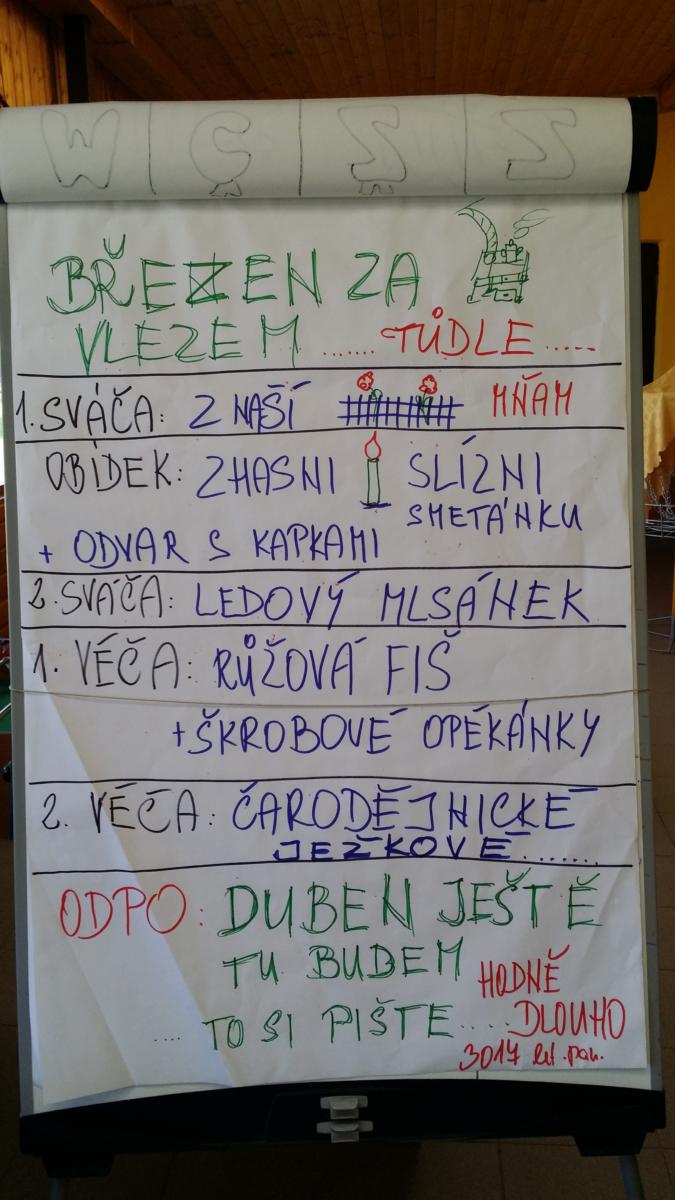 W C S S
BŘEZEN ZA
VLEZEM ....... TŮDLE .....
1. SVÁČA: Z NAŠÍ MŇAM
OBÍDEK: ZHASNI SLÍZNI
SMETÁNKU
+ ODVAR S KAPKAMI
2. SVÁČA: LEDOVÝ MLSÁNEK
1. VÉČA: RŮŽOVÁ FIŠ
+ ŠKROBOVÉ OPÉKÁNKY
2. VÉČA: ČARODĚJNICKÉ
JEŽKOVÉ .......
ODPO: DUBEN JEŠTĚ
TU BUDEM
HODNĚ
.... TO SI PIŠTE .... DLOUHO
3017